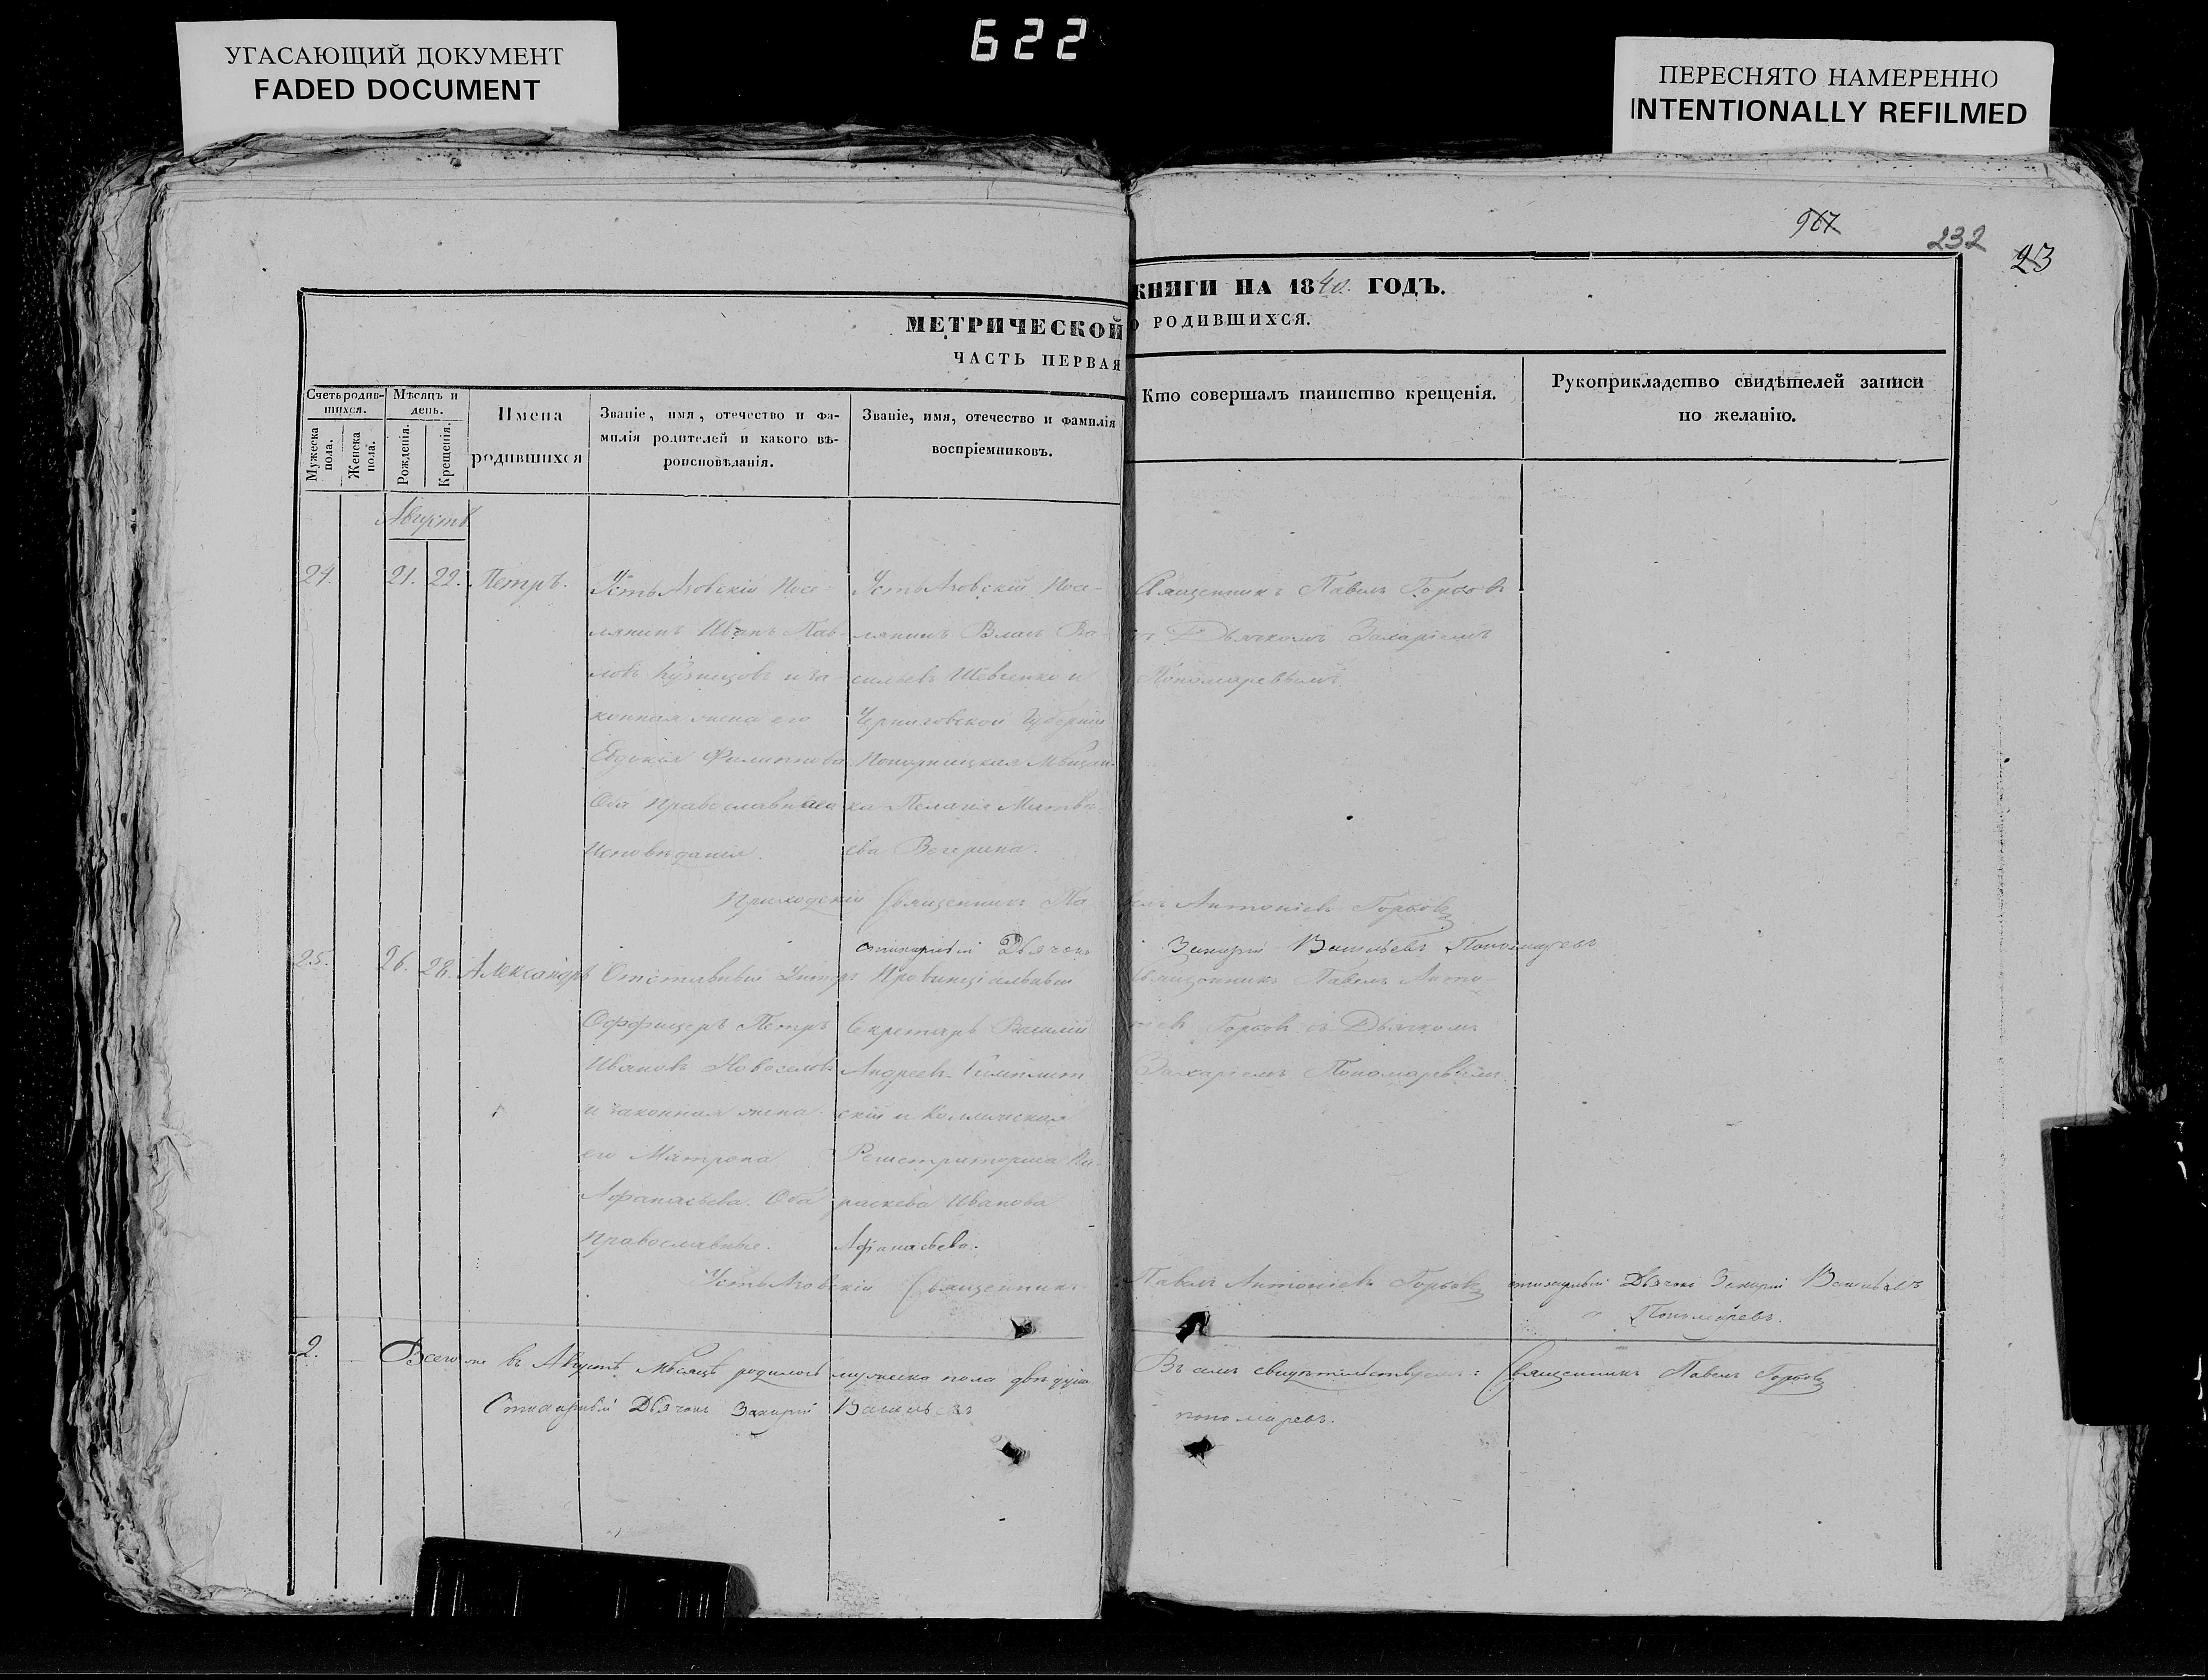 УГАСАЮЩИЙ ДОКУМЕНТ
FADED DOCUMENT
622
ПЕРЕСНЯТО НАМЕРЕННО
INTENTIONALLY REFILMED
967
232
23
МЕТРИЧЕСКОЙ КНИГИ НА 1840. ГОДЪ.
ЧАСТЬ ПЕРВАЯ О РОДИВШИХСЯ.
Счетъ родив-
шихся.
Мужеска пола.
Женска пола.
Мѣсяцъ и
день.
Рожденія.
Крещенія.
Имена
родившихся
Званіе, имя, отечество и фа-
милія родителей и какого вѣ-
роисповѣданія.
Званіе, имя, отечество и фамилія
воспріемниковъ.
Кто совершалъ таинство крещенія.
Рукоприкладство свидѣтелей записи
по желанію.
Августъ
24. 21. 22. Петръ.
Усть Азовскій Посе-
лянинъ Иванъ Пав-
ловъ Кузнецовъ и за-
конная жена его
Евдокія Филиппова
Оба Православнаго
Исповѣданія.
Усть Азовскій Посе-
лянинъ Власъ Ва-
сильевъ Шевченко и
Черниговской Губерніи
Мѣщан-
ка Пелагія Матвѣ-
ева
Священникъ Павелъ Горбовъ
съ Дьячкомъ Захаріемъ
Пономаревымъ.
Приходскій Священникъ Павелъ Антоніевъ Горбовъ
стихарный Дьячокъ Захарій Васильевъ Пономаревъ
25. 26. 28. Александръ
Отставный Унтеръ
Оффицеръ Петръ
Ивановъ Новоселовъ
и законная жена
его Матрона
Афанасьева. Оба
Православные.
Провинціальный
Секретарь Василій
Андреевъ
скій и Коллежская
Регистраторша Па-
раскева Иванова
Афанасьева.
Священникъ Павелъ Анто-
ніевъ Горбовъ съ Дьячкомъ
Захаріемъ Пономаревымъ.
Усть Азовскій Священникъ Павелъ Антоніевъ Горбовъ стихарный Дьячокъ Захарій Васильевъ
Пономаревъ.
2. Всего же въ Августѣ мѣсяцѣ родилось мужеска пола двѣ души Въ семъ свидѣтельствуемъ: Священникъ Павелъ Горбовъ
Стихарный Дьячокъ Захарій Васильевъ пономаревъ.